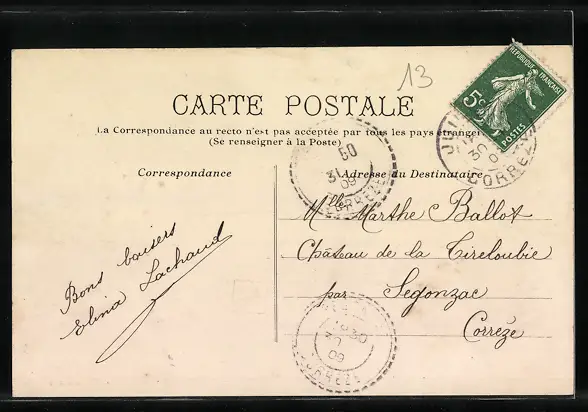 13
CARTE POSTALE
La Correspondance au recto n'est pas acceptée par tous les pays étrangers
(Se renseigner à la Poste)
Correspondance
Adresse du Destinataire
RÉPUBLIQUE FRANÇAISE
5c
POSTES
30
CORREZE
31
09
CORREZE
Mlle Marthe Ballot
Château de la Tireloubie
par Segonzac
Corrèze
Bons baisers
Elina Lachaud
30
09
CORREZE